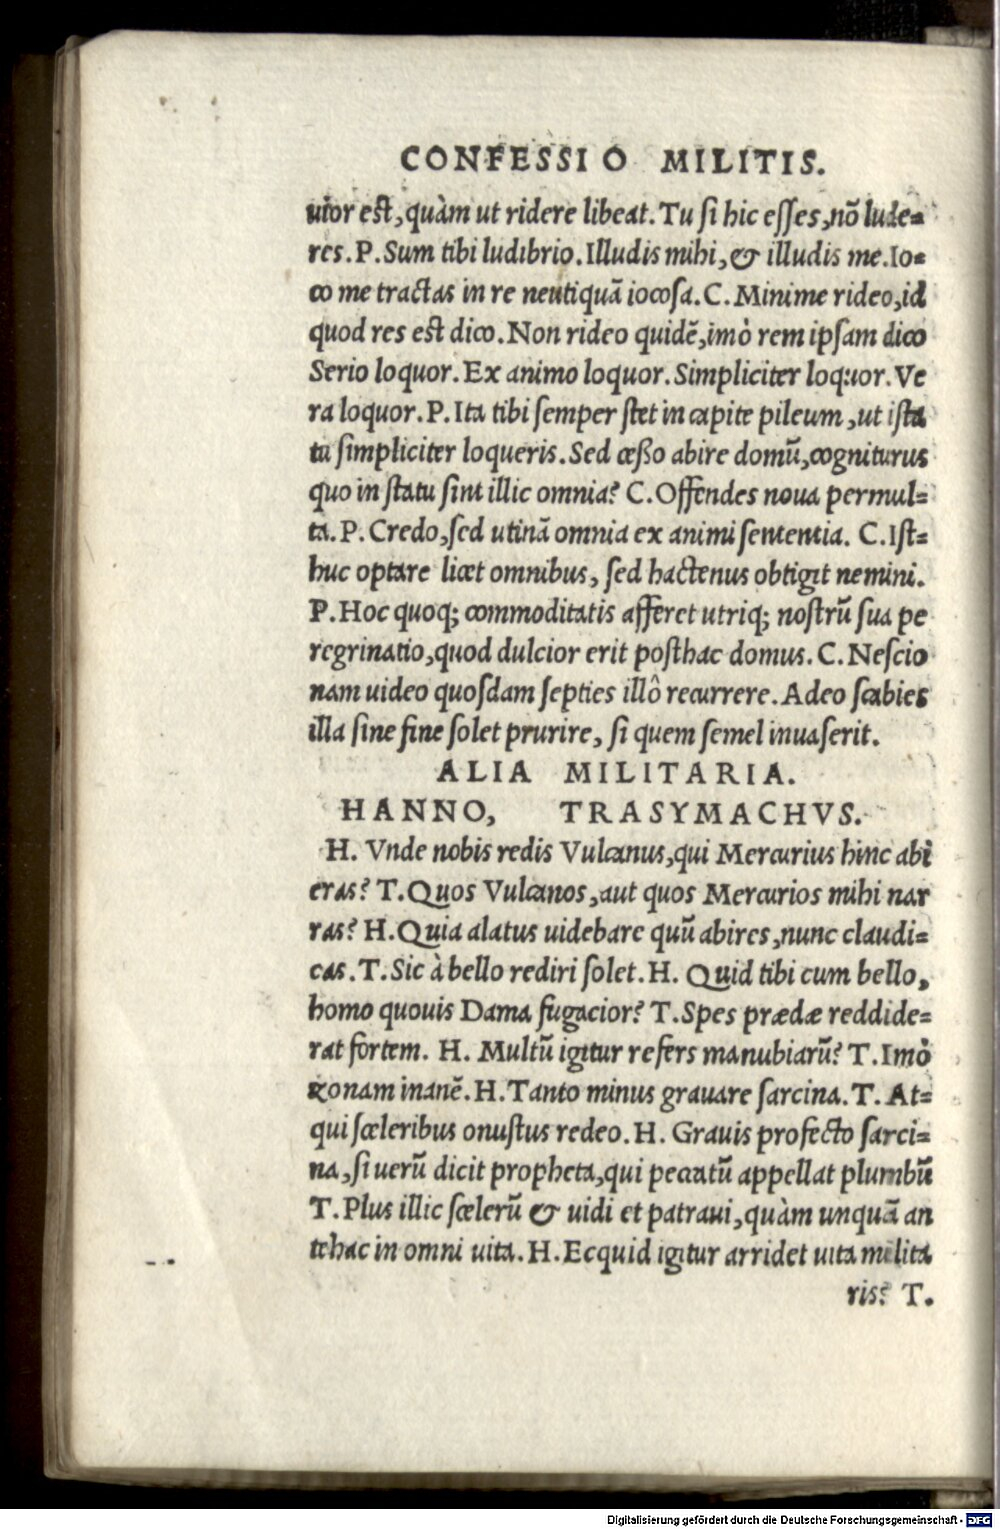 CONFESSIO MILITIS.
uior est, quàm ut ridere libeat. Tu si hic esses, nō lude=
res. P. Sum tibi ludibrio. Illudis mihi, & illudis me. Io=
co me tractas in re neutiquā iocosa. C. Minime rideo, id
quod res est dico. Non rideo quidē, imò rem ipsam dico
Serio loquor. Ex animo loquor. Simpliciter loquor. Ve
ra loquor. P. Ita tibi semper stet in capite pileum, ut ista
tu simpliciter loqueris. Sed cesso abire domū, cogniturus
quo in statu sint illic omnia? C. Offendes noua permul=
ta. P. Credo, sed utinā omnia ex animi sententia. C. Ist=
huc optare licet omnibus, sed hactenus obtigit nemini.
P. Hoc quoq; commoditatis afferet utriq; nostrū sua pe
regrinatio, quod dulcior erit posthac domus. C. Nescio
nam uideo quosdam septies illô recurrere. Adeo scabies
illa sine fine solet prurire, si quem semel inuaserit.
ALIA MILITARIA.
HANNO, TRASYMACHVS.
H. Vnde nobis redis Vulcanus, qui Mercurius hinc abi
eras? T. Quos Vulcanos, aut quos Mercurios mihi nar
ras? H. Quia alatus uidebare quū abires, nunc claudi=
cas. T. Sic à bello rediri solet. H. Quid tibi cum bello,
homo quouis Dama fugacior? T. Spes prædæ reddide=
rat fortem. H. Multū igitur refers manubiarū? T. Imò
zonam inanē. H. Tanto minus grauare sarcina. T. At=
qui sceleribus onustus redeo. H. Grauis profecto sarci=
na, si uerū dicit propheta, qui peccatū appellat plumbū
T. Plus illic scelerū & uidi et patraui, quàm unquā an
tehac in omni uita. H. Ecquid igitur arridet uita milita
ris? T.
Digitalisierung gefördert durch die Deutsche Forschungsgemeinschaft - DFG